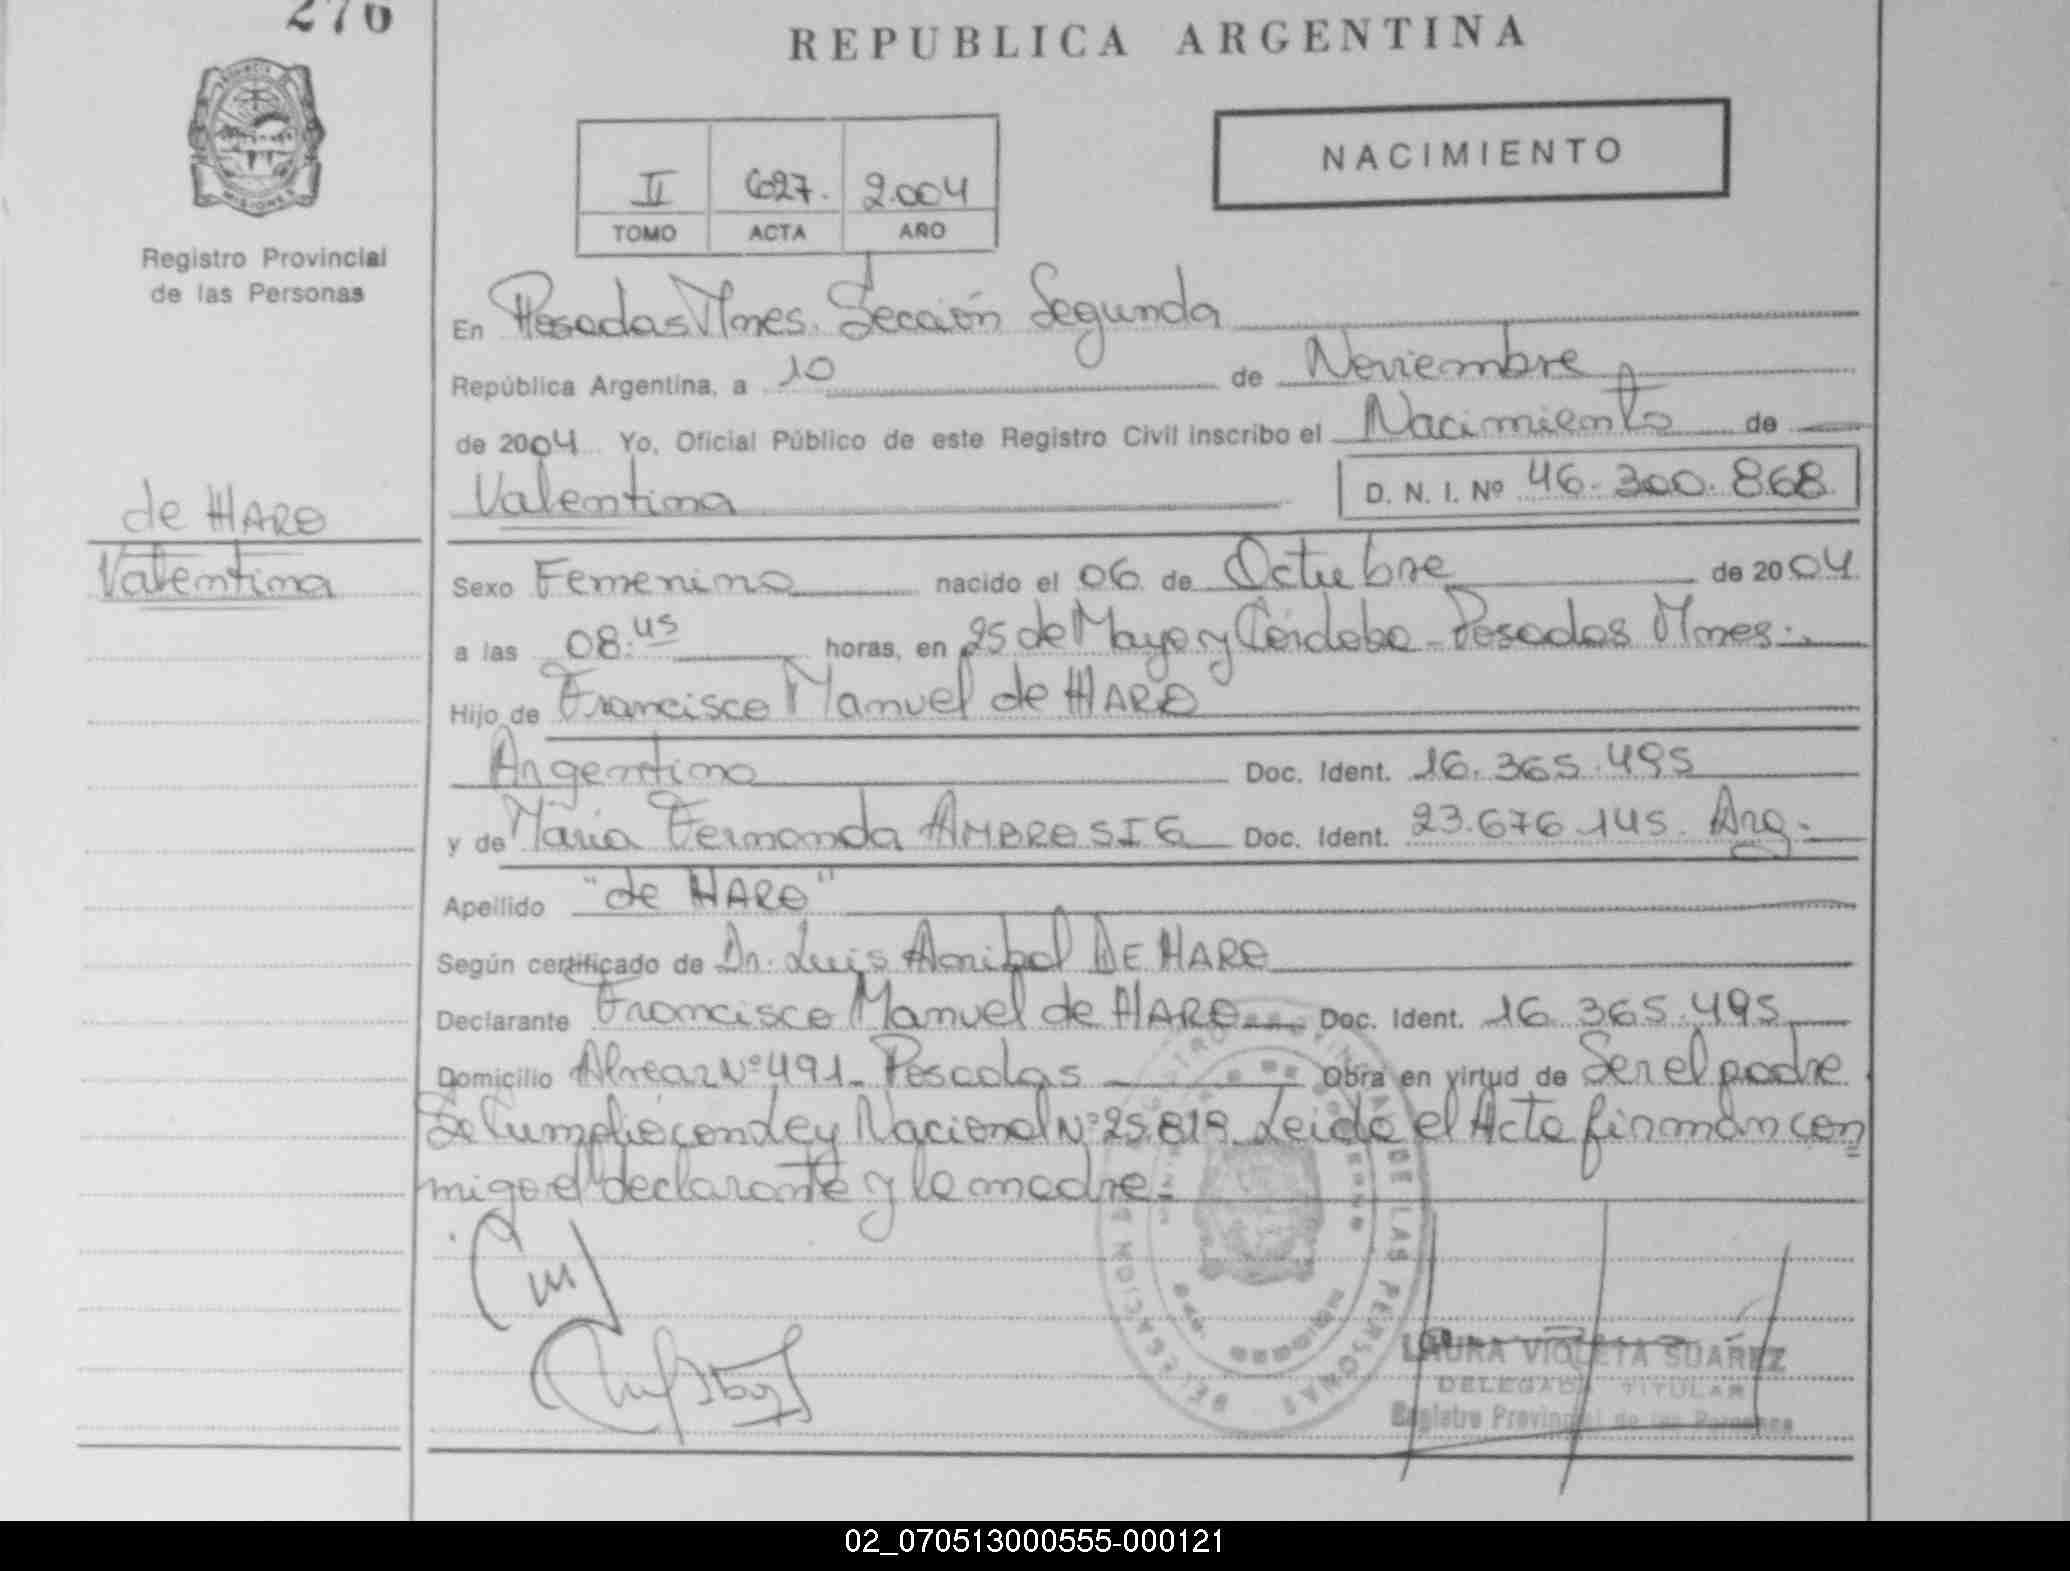 276
REPUBLICA ARGENTINA
PROVINCIA
MISIONES
Registro Provincial
de las Personas
NACIMIENTO
II 627. 2.004
TOMO ACTA AÑO
En Posadas Mnes. Sección Segunda
República Argentina, a 10 de Noviembre
de 2004 Yo, Oficial Público de este Registro Civil inscribo el Nacimiento de
Valentina D. N. I. Nº 46.300.868
de HARO
Valentina
Sexo Femenino nacido el 06 de Octubre de 2004
a las 08:45 horas, en 25 de Mayo y Córdoba - Posadas Mnes:.
Hijo de Francisco Manuel de HARO
Argentino Doc. Ident. 16.365.495
y de María Fernanda AMBROSIG Doc. Ident. 23.676.145. Arg.
Apellido "de HARO"
Según certificado de Dr. Luis Anibal DE HARO
Declarante Francisco Manuel de HARO Doc. Ident. 16.365.495
Domicilio Alvear Nº 491 - Posadas Obra en virtud de Ser el padre
Se Cumplió con Ley Nacional Nº 25.819. Leida el Acta firman con
migo el declarante y la madre.-
DE LAS PERSONAS
DELEGACION
LAURA VIOLETA SUAREZ
DELEGADA TITULAR
Registro Provincial de las Personas
02_070513000555-000121